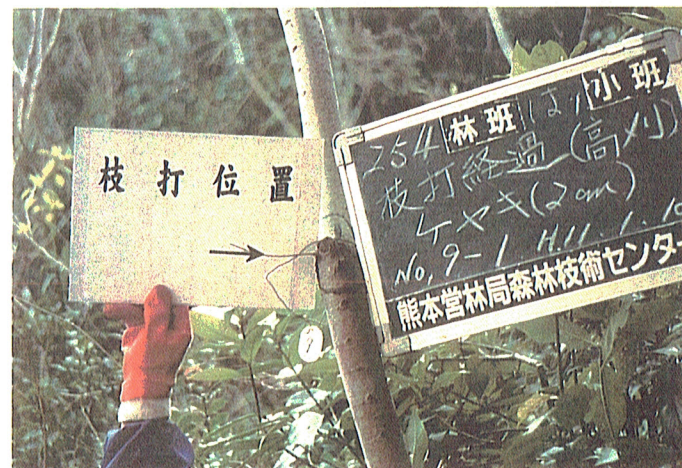 枝打位置
254林班はり小班
枝打経過(高刈)
ケヤキ(2cm)
No,9-1 H11.1.10
熊本営林局森林技術センター
9